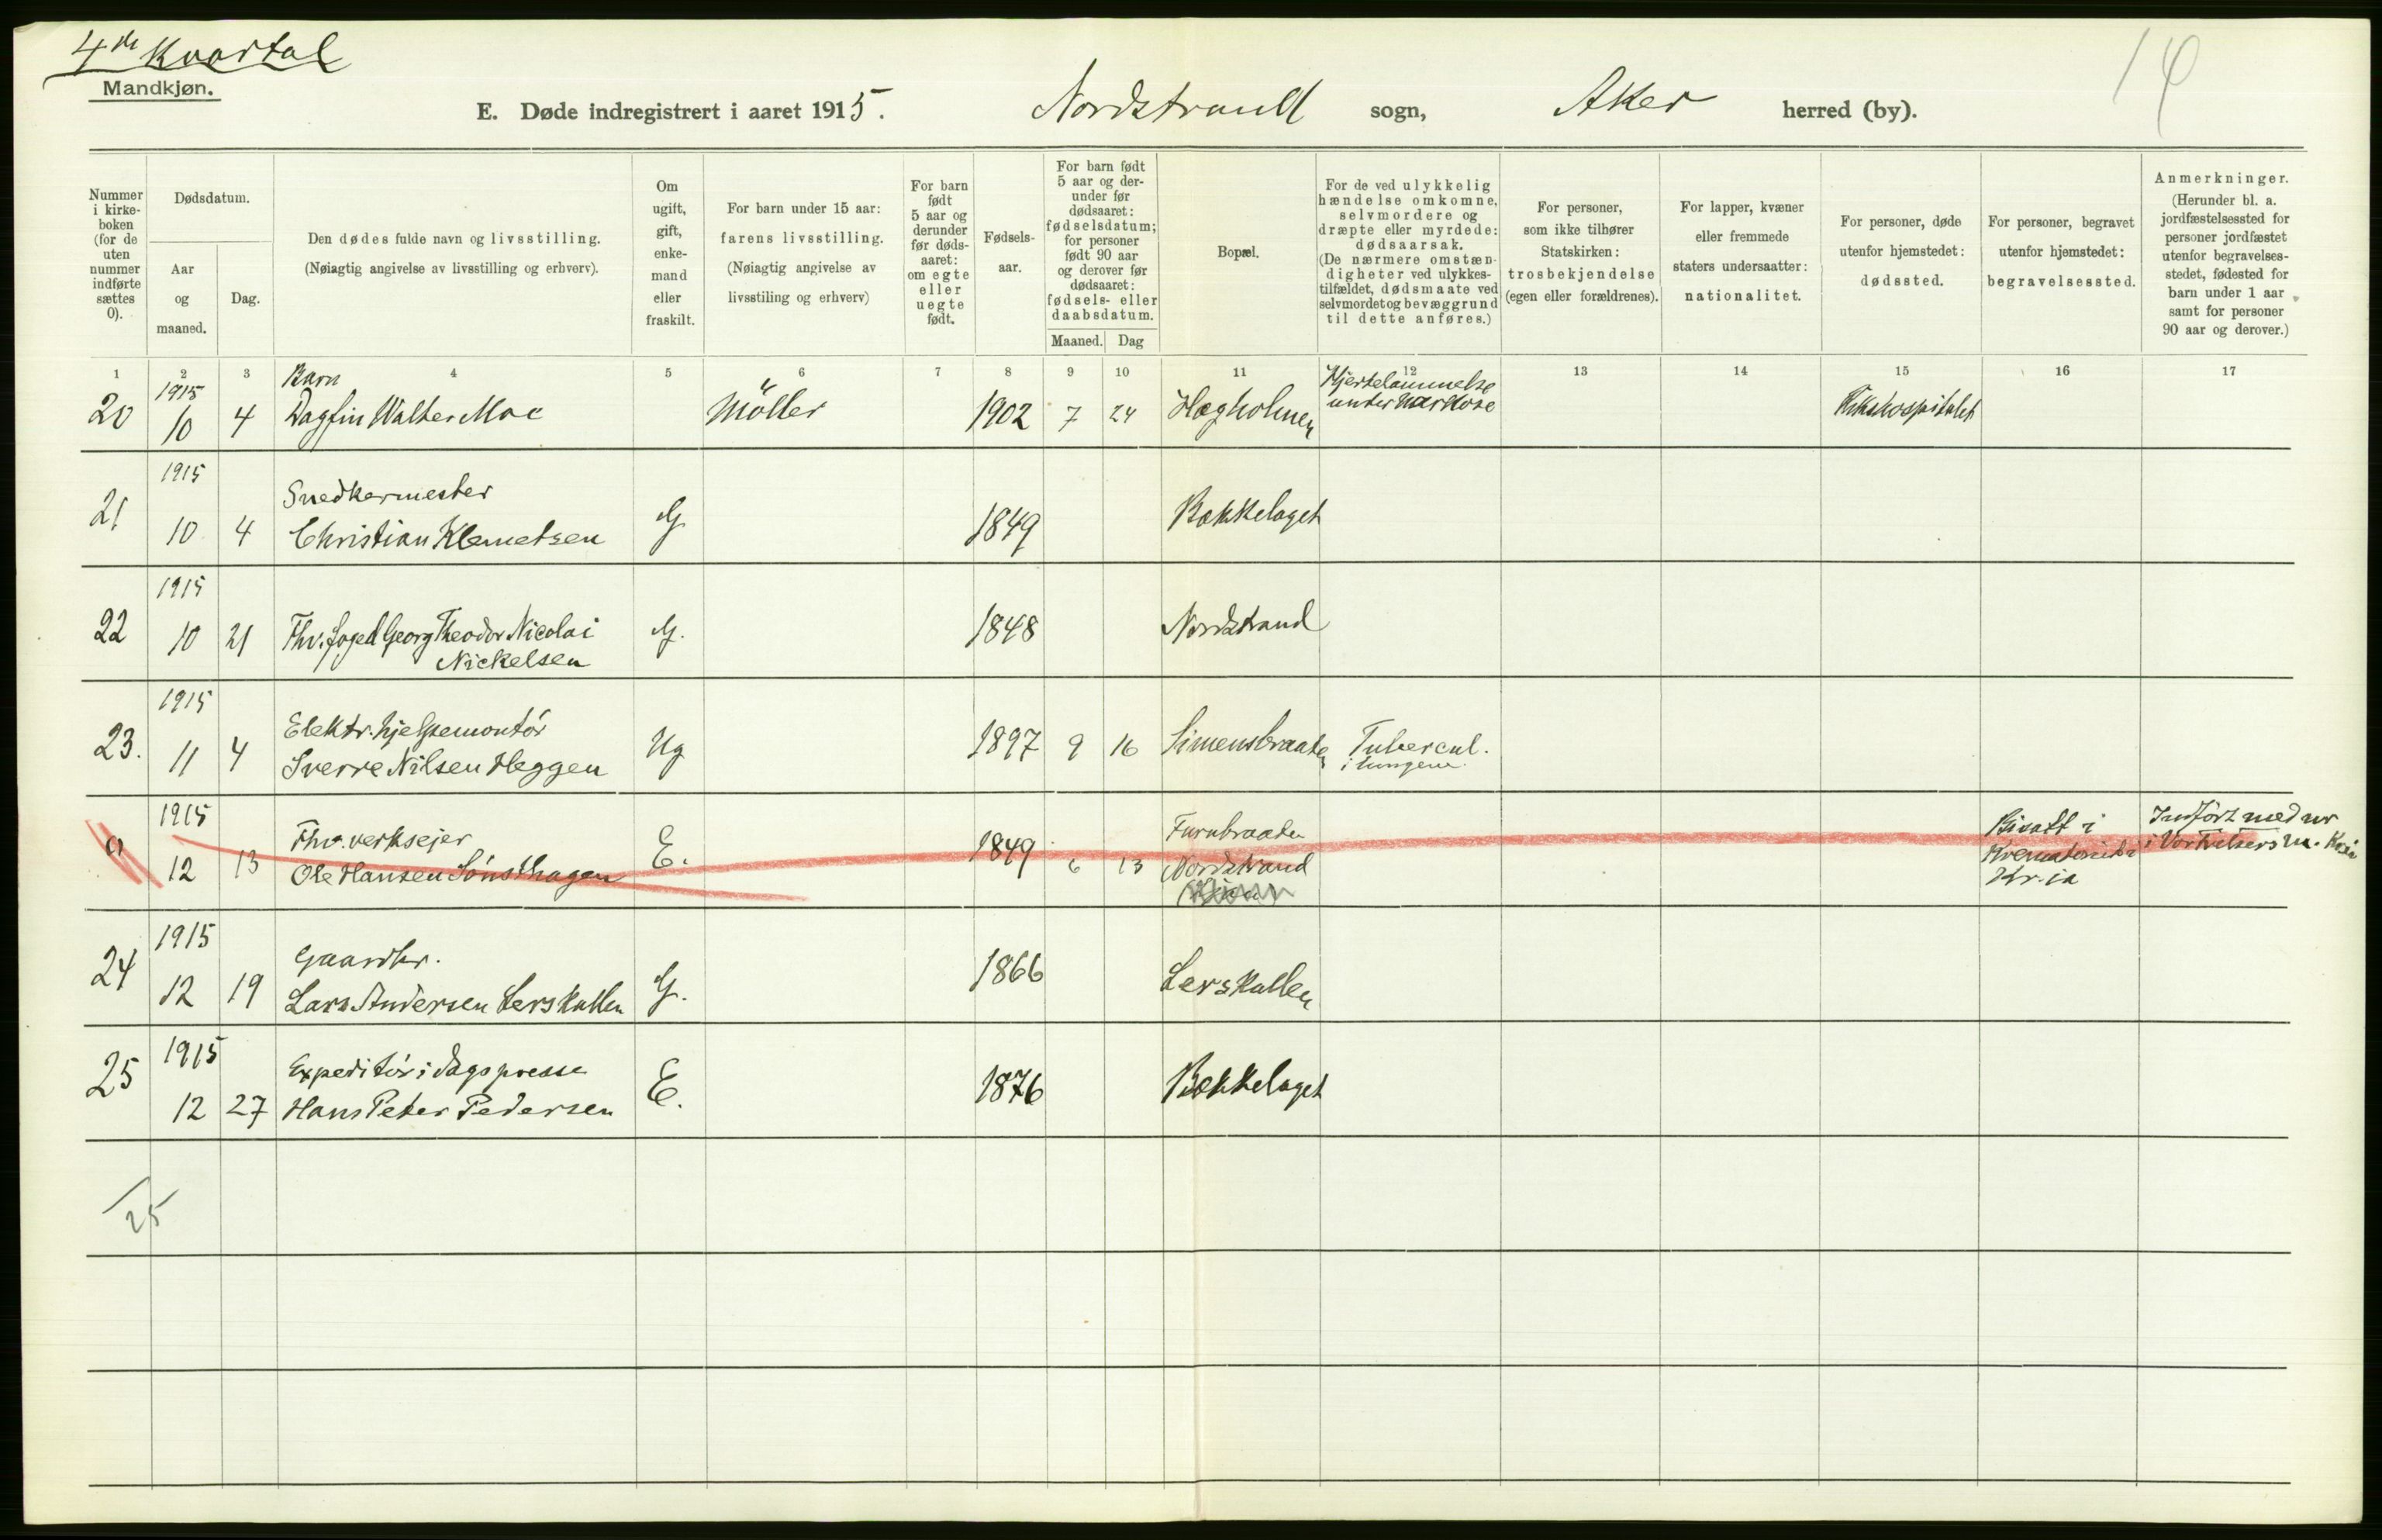 4de Kvartal
Mandkjøn.
E. Døde indregistrert i aaret 1915. Nordstrand sogn, Aker herred (by).
Nummer
i kirke-
boken
(for de
uten
nummer
indførte
sættes
0).
Dødsdatum.
Aar
og
maaned.
Dag.
Den dødes fulde navn og livsstilling.
(Nøiagtig angivelse av livsstilling og erhverv).
Om
ugift,
gift,
enke-
mand
eller
fraskilt.
For barn under 15 aar:
farens livsstilling.
(Nøiagtig angivelse av
livsstiling og erhverv)
For barn
født
5 aar og
derunder
før døds-
aaret:
om egte
eller
uegte
født.
Fødsels-
aar.
For barn født
5 aar og der-
under før
dødsaaret:
fødselsdatum;
for personer
født 90 aar
og derover før
dødsaaret:
fødsels- eller
daabsdatum.
Maaned. Dag
Bopæl.
For de ved ulykkelig
hændelse omkomne,
selvmordere og
dræpte eller myrdede:
dødsaarsak.
(De nærmere omstæn-
digheter ved ulykkes-
tilfældet, dødsmaate ved
selvmordet og bevæggrund
til dette anføres.)
For personer,
som ikke tilhører
Statskirken:
trosbekjendelse
(egen eller forældrenes).
For lapper, kvæner
eller fremmede
staters undersaatter:
nationalitet.
For personer, døde
utenfor hjemstedet:
dødssted.
For personer, begravet
utenfor hjemstedet:
begravelsessted.
Anmerkninger.
(Herunder bl. a.
jordfæstelsessted for
personer jordfæstet
utenfor begravelses-
stedet, fødested for
barn under 1 aar
samt for personer
90 aar og derover.)
1 2 3 4 5 6 7 8 9 10 11 12 13 14 15 16 17
1915 Barn Hjertelammelse
20 10 4 Dagfin Walter Moe Möller 1902 7 24 Hægholmen under narkose Rikshospitalet
1915
Snedkermester
21 10 4 Christian Klemetsen G 1849 Bækkelaget
1915
22 10 21 Fhv. foged Georg Theodor Nicolai G. 1848 Nordstrand
Nickelsen
1915
Elektr. hjelpemontör
23. 11 4 Sverre Nilsen Heggen Ug 1897 9 16 Simensbraaten Tubercul.
i lungene.
1915
Fhv. verksejer Furubraaten Bisatt i Indført med nr
0 12 13 Ole Hansen Sönsthagen E. 1849 6 13 Nordstrand Krematoriet i i Vor Frelsers m. Kr.ia
Kr.ia
1915
Gaardbr.
24 12 19 Lars Andersen Lerskallen G. 1866 Lerskallen
1915
Expeditör i dagspresse
25 12 27 Hans Peter Pedersen E. 1876 Bækkelaget
25